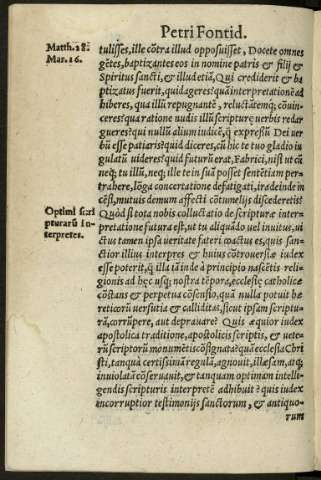 Petri Fontid.
Matth. 28.
Mar. 16.
tulisses, ille cōtra illud opposuisset, Docete omnes
gētes, baptizantes eos in nomine patris & filij &
Spiritus sancti, & illud etiā, Qui crediderit & ba
ptizatus fuerit, quid ageres? quā interpretationē ad
hiberes, qua illū repugnantē, reluctātemq; cōuin-
ceres? qua ratione nudis illū scripturę verbis redar
gueres? qui nullū alium iudicē, q̄ expressū Dei ver
bū esse patiaris? quid diceres, cū hic te tuo gladio iu
gulatū uideres? quid futurū erat, Fabrici, nisi ut cū
neq; tu illū, neq; ille te in suā posset sentētiam per-
trahere, lōga concertatione defatigati, ira deinde in
cēsi, mutuis demum affecti cōtumelijs discederetis?
Optimi scri
pturarū In-
terpretes.
Quòd si tota nobis colluctatio de scripturæ inter-
pretatione futura est, ut tu aliquādo uel inuitus, ui
ctus tamen ipsa ueritate fateri coactus es, quis san-
ctior illius interpres & huius cōtrouersiæ iudex
esse poterit, q̄ illa tā inde à principio nascētis reli-
gionis ad hęc usq; nostra tēpora, ecclesię catholicæ
cōstans & perpetua cōsensio, quā nulla potuit hæ
reticorū uersutia & calliditas, sicut ipsam scriptu-
rā, corrūpere, aut deprauare? Quis æquior iudex
apostolica traditione, apostolicis scriptis, & uete-
rū scriptorū monumētis cōsignata? quā ecclesia Chri
sti, tanquā certissimā regulā, agnouit, illæsam, atq;
inuiolatā cōseruauit, & tanquam optimam intelli-
gendis scripturis interpretē adhibuit? quis iudex
incorruptior testimonijs sanctorum, & antiquo-
rum